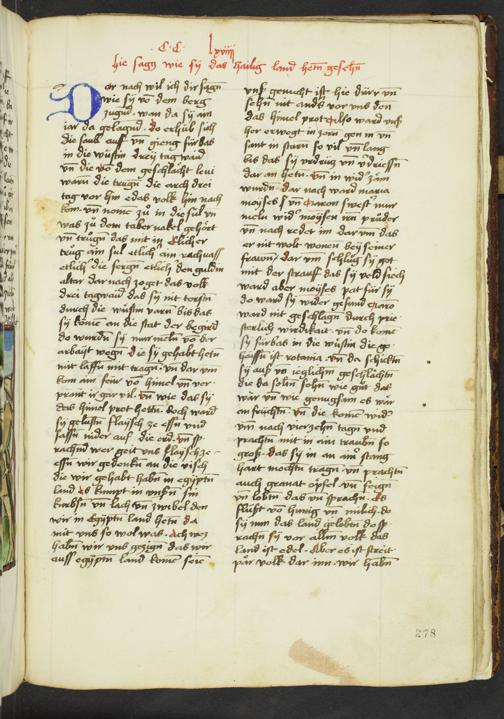 ·C·C· lxviiij
hie sagñ wie sÿ das hailig land hetñ gesehñ
Der nach wil ich dir sagñ
wie sÿ võ dem berg
zugñ· wan da sÿ ain
iar da gelagñ· do erhub sich
die saul auff vñ gieng fürbas
in die wüstin dreÿ tagwaid
vñ die võ dem geschlächt leui
warñ die trugñ die arch dreÿ
tag vor hin e das volk hin nach
kom· vñ nomē zu in die sul vñ
was zu dem tabernakel gehört
vñ trugñ das mit in etlicher
trug ain sul etlich ain rachuass
etlich die sergñ etlich den guldin
altar dar nach zoget das volk
dreÿ tagwaid das sÿ nit torstñ
durch die wüstin varñ bis das
sÿ komē an die stat der begird
do wurdñ sÿ murmelñ võ der
arbaÿt wegñ die sÿ gehabt hetñ
mit lassñ mit tragñ· vñ dar vm
kom ain feür võ himel vñ ver
prant ir gar vil· vñ wie das sÿ
das himel prot hettñ· doch ward
sÿ gelustñ flaÿsch ze essñ vnd
sassñ nider auf die erd· vñ sp
rachñ wer geit vns flaÿsch ze
essñ wir gedenkñ an die visch
die wir gehabt habñ in egÿptñ
land· es kumpt in vnsñ sin
kürbsñ vñ lach vñ zwibel den
wir in Egÿptñ land hetñ da
mit vns so wol was· Ach waz
habñ wir vns gezigñ das wir
auss egÿptñ land komē seiē
vnß gemücht ist· hie dürr vñ
sehñ nit andß vor vns den
das himel prot· Also ward vnß
her erwegt in zorñ gen in vñ
sant in sturñ so vil vñ lang
bis das sÿ vrdrüg vñ vdriessñ
dar an hetñ· vñ in wid zäm
wurdñ· dar nach ward maria
moÿses vñ Aaron swestr mur
meln widr moÿsen irñ prüder
vñ nach redet im dar vm das
er nit wolt wonen beÿ seiner
frawñ· dar vm schlug sÿ got
mit der strauff das sÿ veldsiech
ward aber moÿses pat für sÿ
do ward sÿ wider gesund· Aaro
ward nit geschlagñ durch prie
sterlich wirdikait· vñ do komē
sÿ fürbas in die wüstin die ge
haissñ ist rotania· vñ da schiktñ
sÿ auß võ ieglichm geschlächtñ
die da soltñ sehñ wie gut das
wär vñ wie genugsam es wär
an früchtñ· vñ die komē widr
vm nach vierzehñ tagñ vnd
prachtñ mit in ain traubñ so
groß· das sÿ in an ainr stang
hart mochtñ tragñ· vñ prachtñ
auch granat öpfel vñ feigñ
vñ lobtñ das vñ sprachñ· Es
flüßt võ hünig vñ milich do
sÿ nun das land gelobtñ do sp
rachñ sÿ vor allem volk das
land ist edel· Aber es ist streit
pär volk dar inn· wir habñ
278